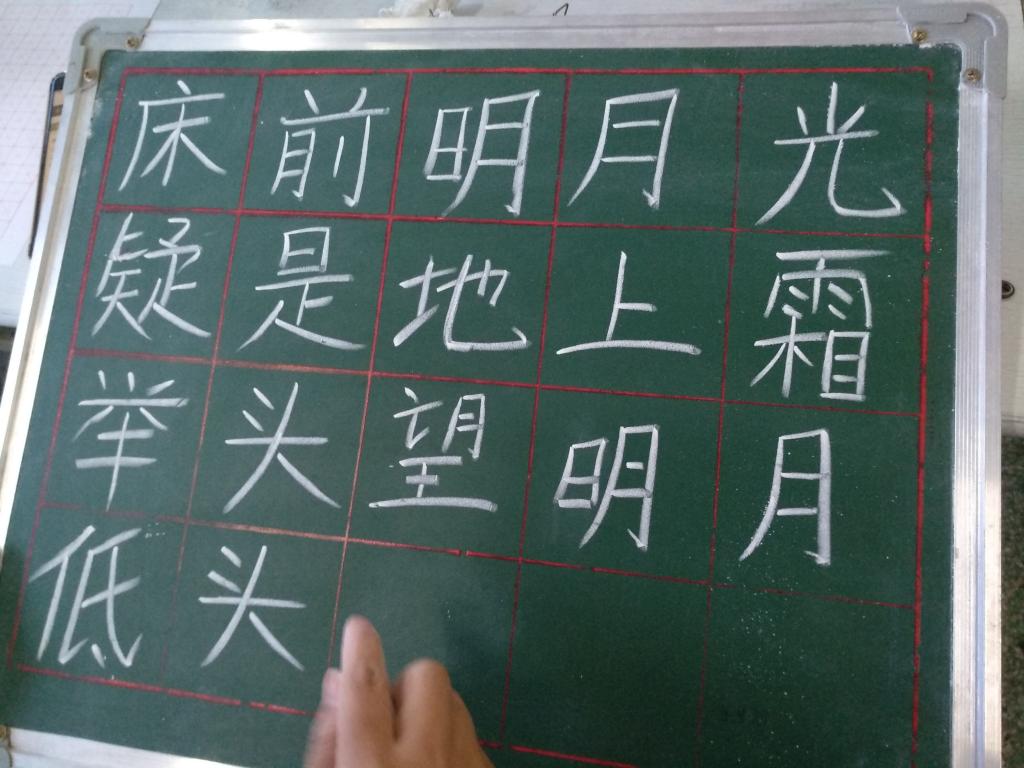 床前明月光
疑是地上霜
举头望明月
低头